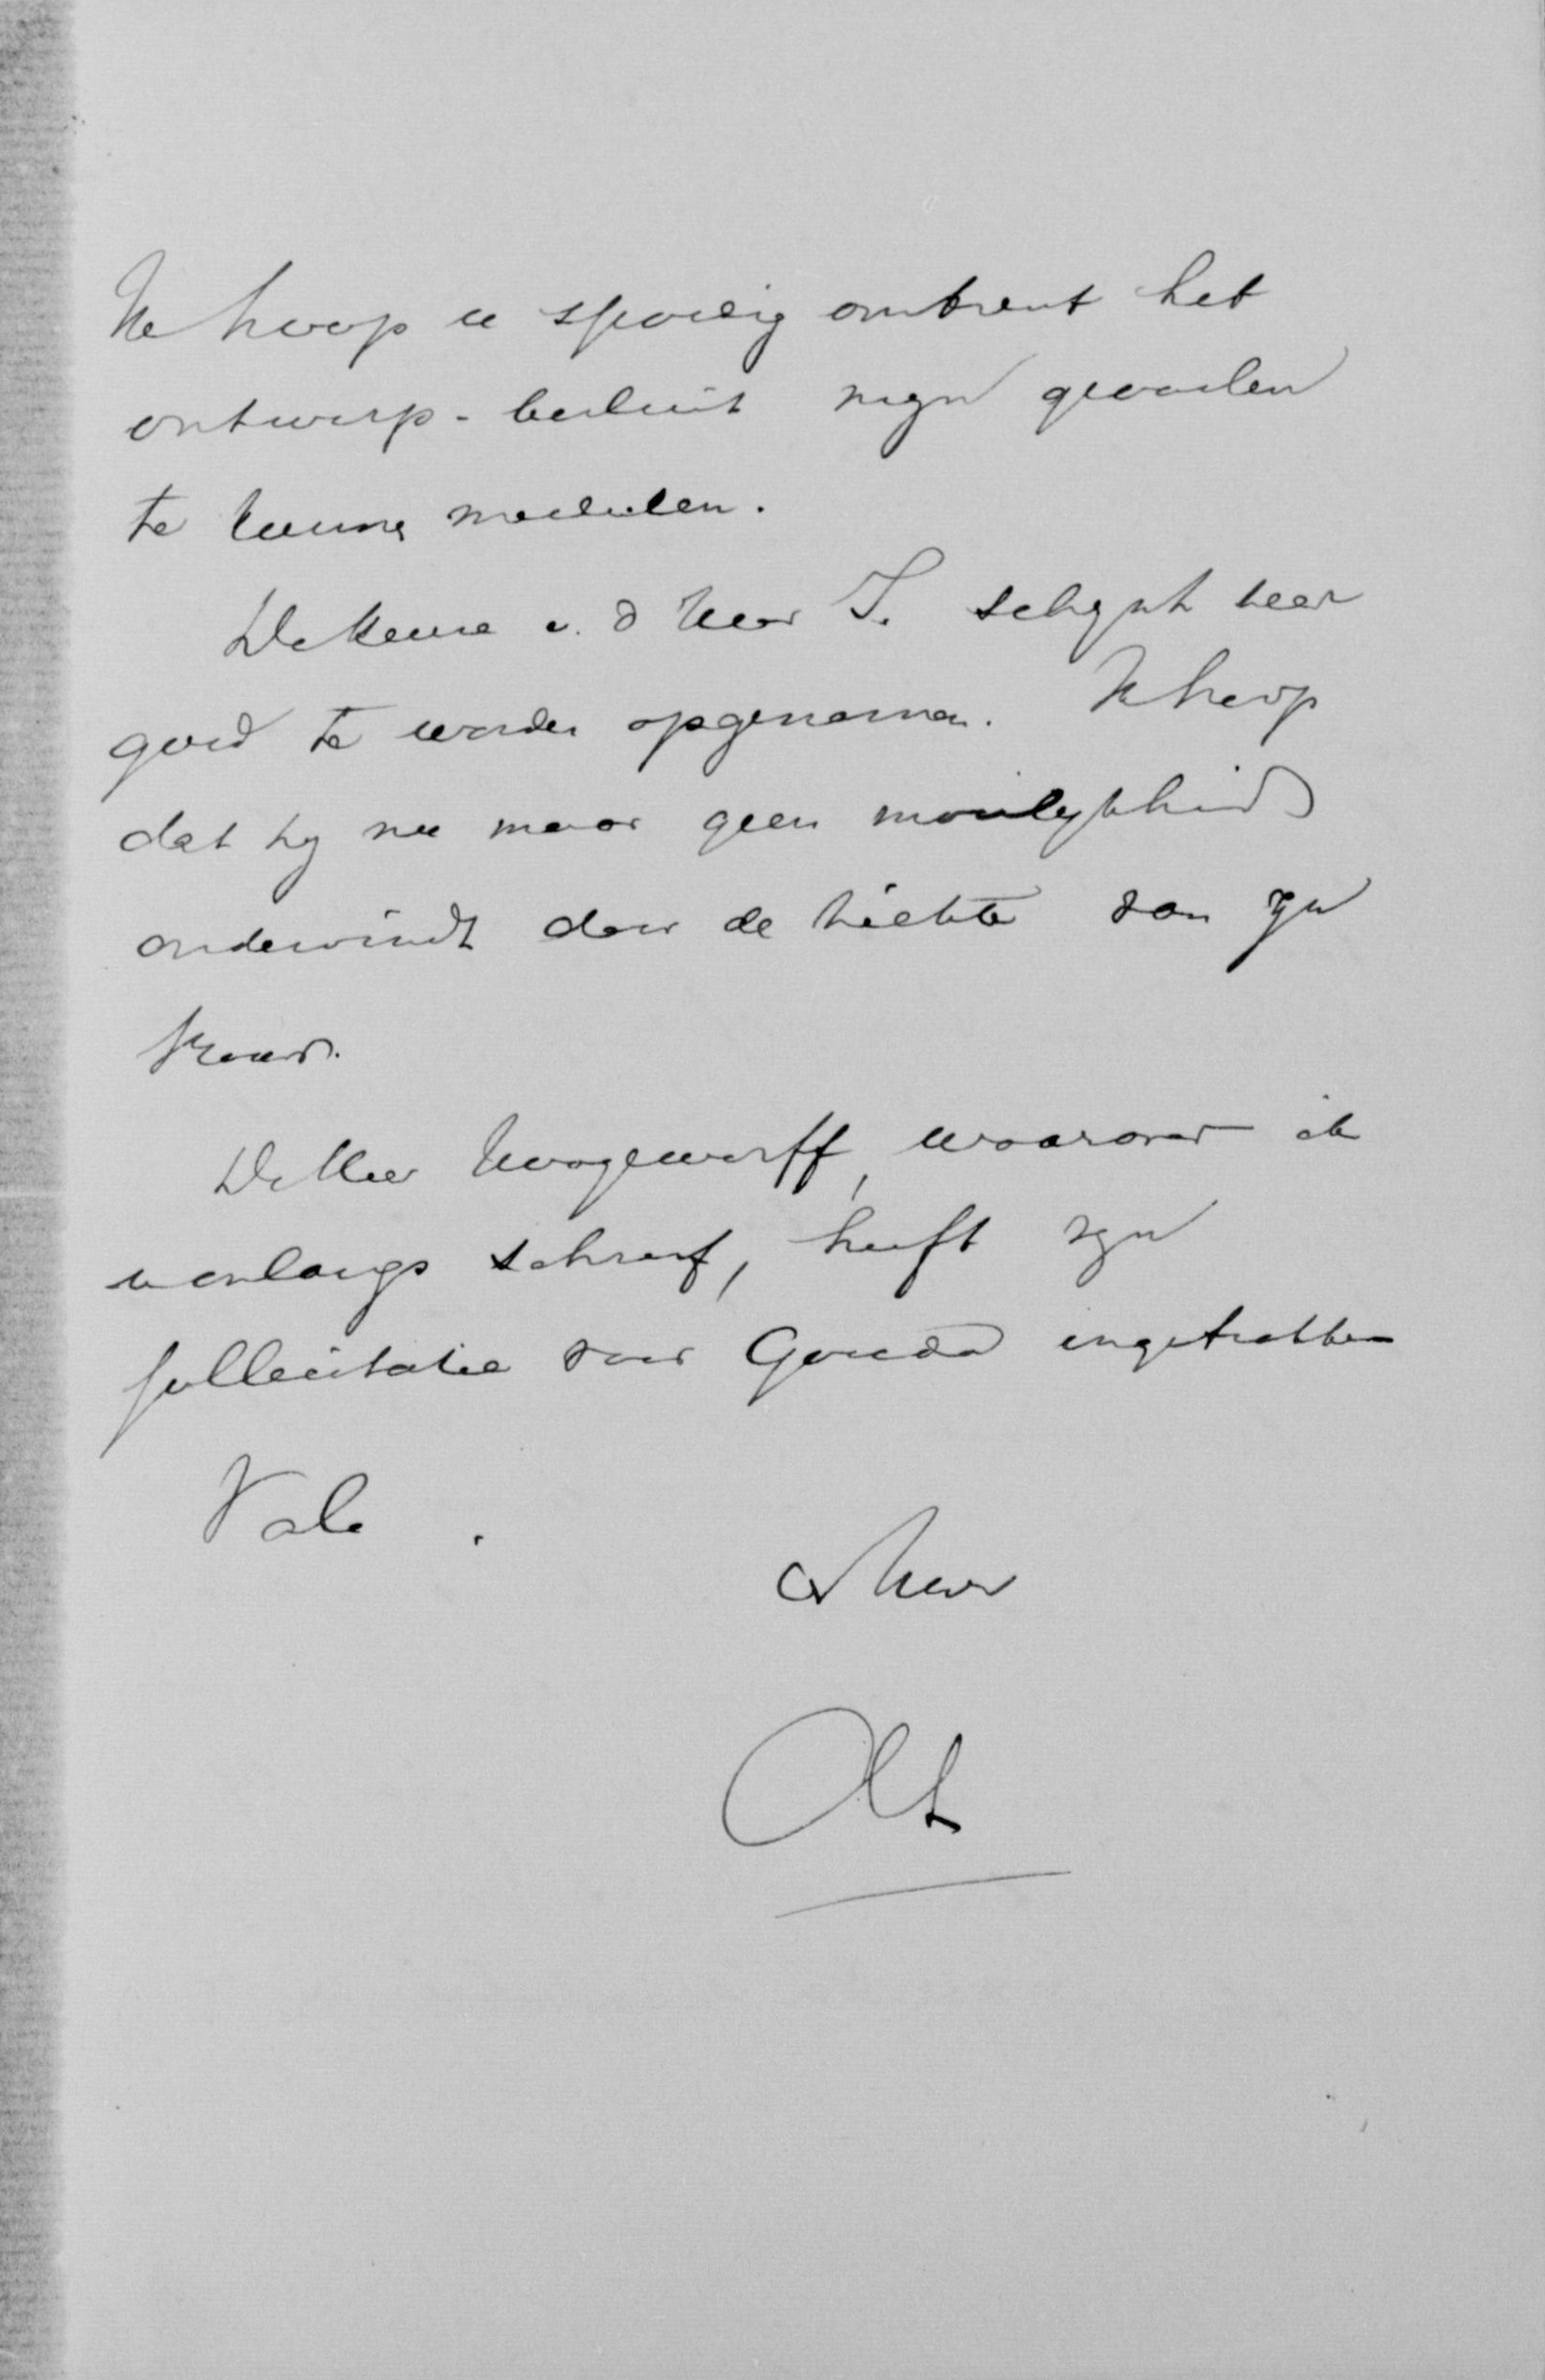 Ik hoop u spoedig omtrent het
ontwerp-besluit mijn gevoelen
te kunnen mededeelen.
De keuze v. d Heer T. schijnt zeer
goed te worden opgenomen. Ik hoop
dat hij nu maar geen moeilijkheid
ondervindt door de ziekte van zijn
vrouw.
De Heer Hoogewerff, waarover ik
u onlangs schreef, heeft zijn
sollicitatie voor Gouda ingetrokken
Vale.